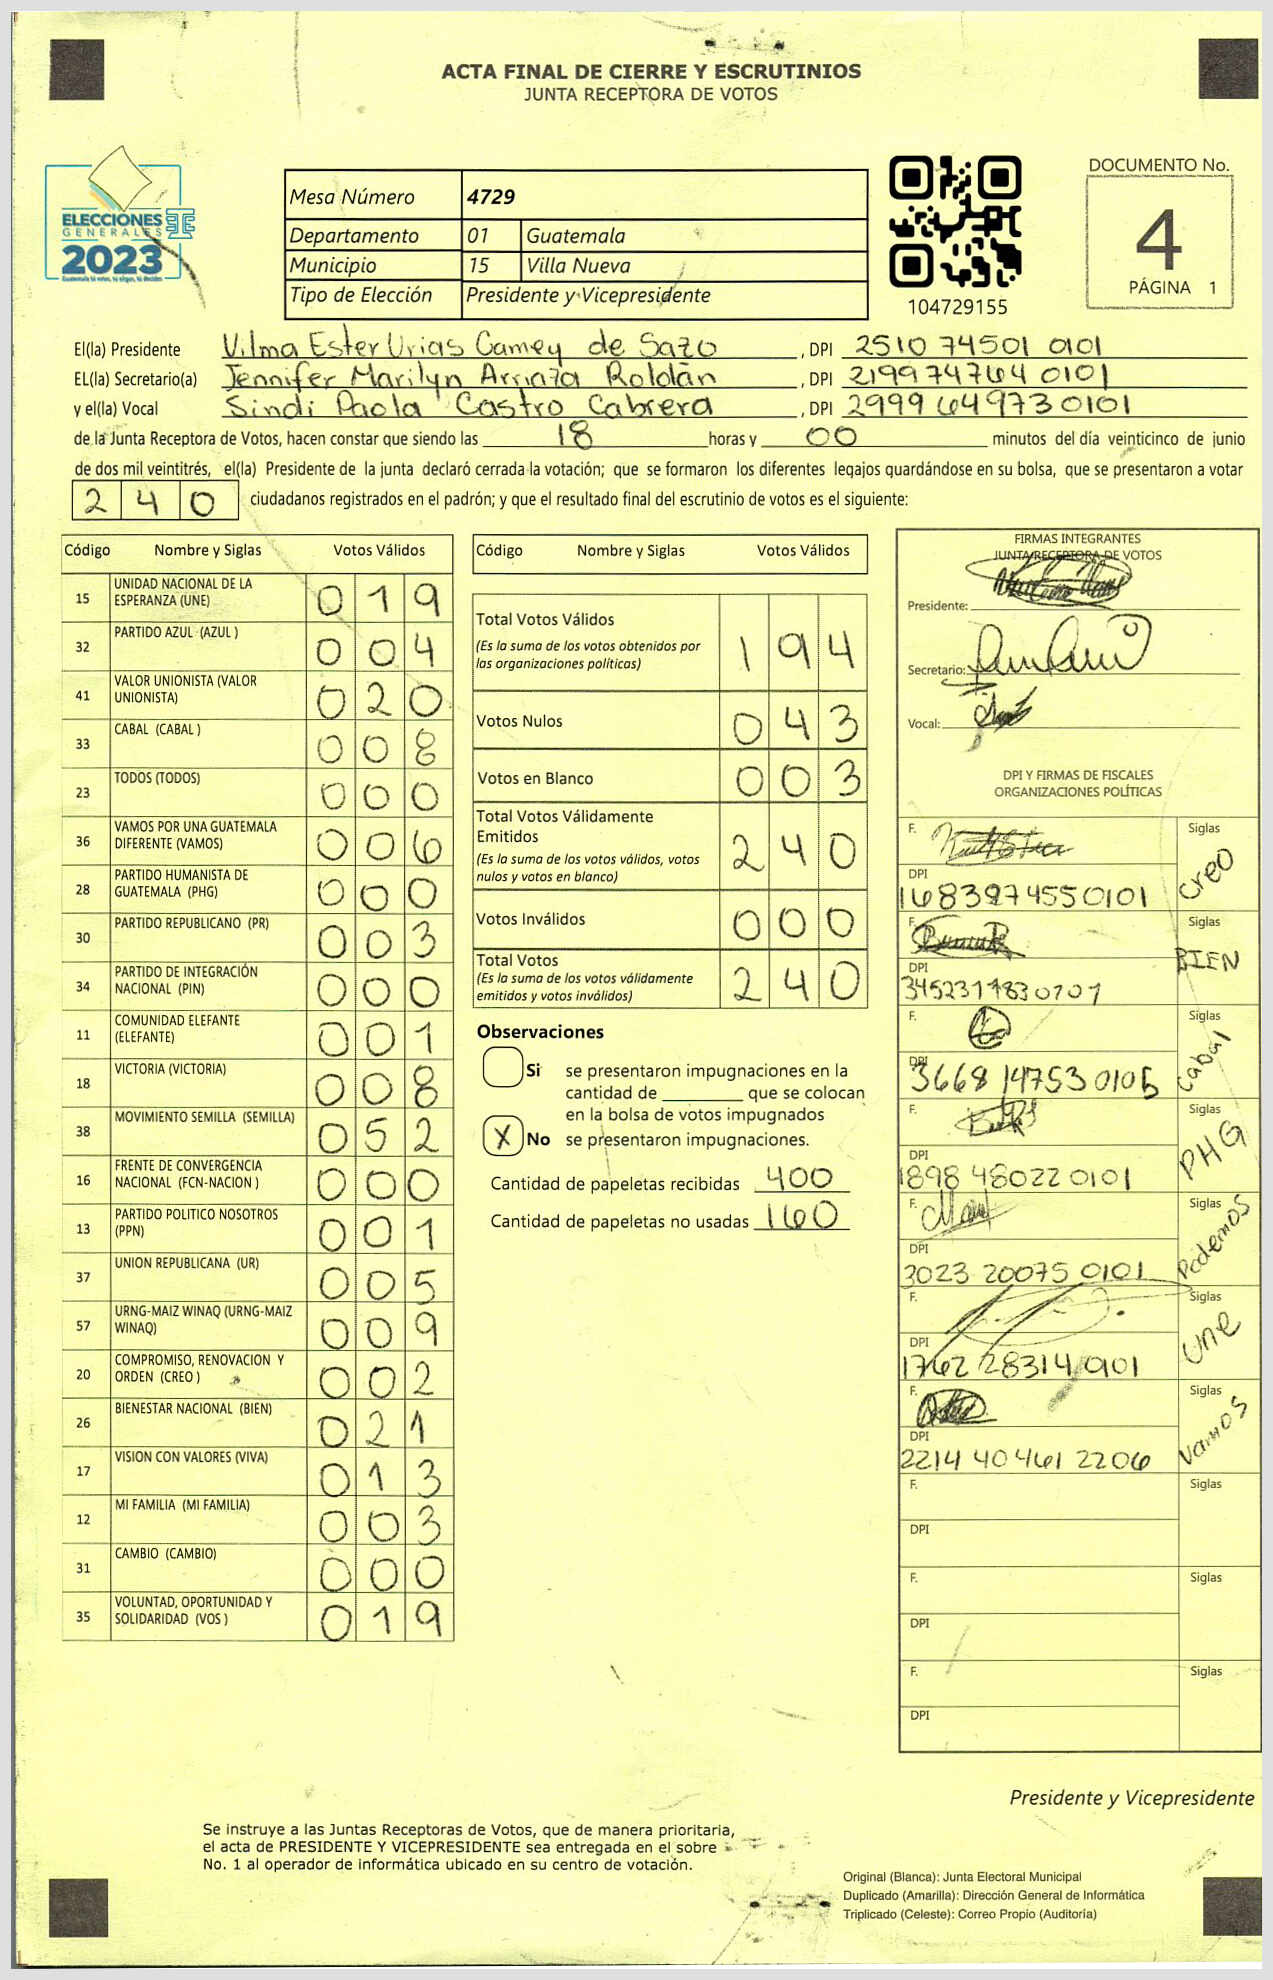 ACTA FINAL DE CIERRE Y ESCRUTINIOS
JUNTA RECEPTORA DE VOTOS
ELECCIONES
GENERALES
2023
Mesa Número 4729
Departamento 01 Guatemala
Municipio 15 Villa Nueva
Tipo de Elección Presidente y Vicepresidente
104729155
DOCUMENTO No.
4
PÁGINA 1
El(la) Presidente Vilma Ester Urias Camey de Sazo, DPI 2510 74501 0101
EL(la) Secretario(a) Jennifer Marilyn Arriaza Roldán, DPI 2199 74764 0101
y el(la) Vocal Sindi Paola Castro Cabrera, DPI 2999 64973 0101
de la Junta Receptora de Votos, hacen constar que siendo las 18 horas y 00 minutos del día veinticinco de junio
de dos mil veintitrés, el(la) Presidente de la junta declaró cerrada la votación; que se formaron los diferentes legajos quardándose en su bolsa, que se presentaron a votar
240 ciudadanos registrados en el padrón; y que el resultado final del escrutinio de votos es el siguiente:
Código Nombre y Siglas Votos Válidos
15 UNIDAD NACIONAL DE LA ESPERANZA (UNE) 019
32 PARTIDO AZUL (AZUL ) 004
41 VALOR UNIONISTA (VALOR UNIONISTA) 020
33 CABAL (CABAL ) 008
23 TODOS (TODOS) 000
36 VAMOS POR UNA GUATEMALA DIFERENTE (VAMOS) 006
28 PARTIDO HUMANISTA DE GUATEMALA (PHG) 000
30 PARTIDO REPUBLICANO (PR) 003
34 PARTIDO DE INTEGRACIÓN NACIONAL (PIN) 000
11 COMUNIDAD ELEFANTE (ELEFANTE) 001
18 VICTORIA (VICTORIA) 008
38 MOVIMIENTO SEMILLA (SEMILLA) 052
16 FRENTE DE CONVERGENCIA NACIONAL (FCN-NACION ) 000
13 PARTIDO POLITICO NOSOTROS (PPN) 001
37 UNION REPUBLICANA (UR) 005
57 URNG-MAIZ WINAQ (URNG-MAIZ WINAQ) 009
20 COMPROMISO, RENOVACION Y ORDEN (CREO ) 002
26 BIENESTAR NACIONAL (BIEN) 021
17 VISION CON VALORES (VIVA) 013
12 MI FAMILIA (MI FAMILIA) 003
31 CAMBIO (CAMBIO) 000
35 VOLUNTAD, OPORTUNIDAD Y SOLIDARIDAD (VOS ) 019
Código Nombre y Siglas Votos Válidos
Total Votos Válidos 194
(Es la suma de los votos obtenidos por
las organizaciones políticas)
Votos Nulos 043
Votos en Blanco 003
Total Votos Válidamente
Emitidos 240
(Es la suma de los votos válidos, votos
nulos y votos en blanco)
Votos Inválidos 000
Total Votos 240
(Es la suma de los votos válidamente
emitidos y votos inválidos)
Observaciones
Si se presentaron impugnaciones en la
cantidad de ________ que se colocan
en la bolsa de votos impugnados
X No se presentaron impugnaciones.
Cantidad de papeletas recibidas 400
Cantidad de papeletas no usadas 160
FIRMAS INTEGRANTES
JUNTA RECEPTORA DE VOTOS
Presidente:
Secretario:
Vocal:
DPI Y FIRMAS DE FISCALES
ORGANIZACIONES POLÍTICAS
F. Siglas creo
DPI 1683974550101
F. Siglas BIEN
DPI
F. Siglas cabal
DPI 3668 14753 0105
F. Siglas PHG
DPI 1898 48022 0101
F. Siglas Podemos
DPI 3023 20075 0101
F. Siglas une
DPI 1762 28314 0101
F. Siglas Vamos
DPI 2214 40461 2206
F. Siglas
DPI
F. Siglas
DPI
F. Siglas
DPI
Presidente y Vicepresidente
Se instruye a las Juntas Receptoras de Votos, que de manera prioritaria,
el acta de PRESIDENTE Y VICEPRESIDENTE sea entregada en el sobre
No. 1 al operador de informática ubicado en su centro de votación.
Original (Blanca): Junta Electoral Municipal
Duplicado (Amarilla): Dirección General de Informática
Triplicado (Celeste): Correo Propio (Auditoría)